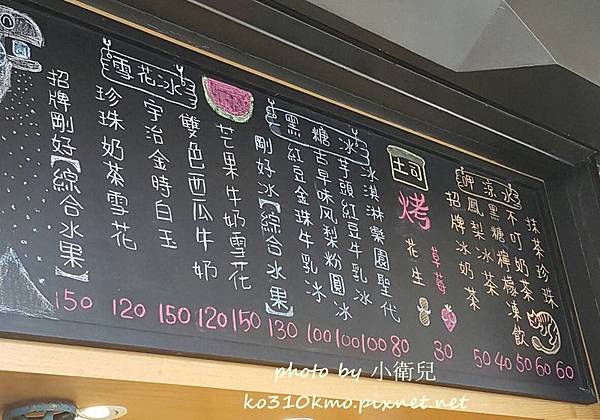 雪花冰
招牌剛好【綜合水果】 150
珍珠奶茶雪花 120
宇治金時白玉 150
雙色西瓜牛奶 120
芒果牛奶雪花 150
黑糖冰
剛好冰【綜合水果】 130
紅豆金珠牛乳冰 100
古早味风梨粉圓冰 100
芋頭紅豆牛乳冰 100
冰淇淋樂園聖代 80
土司
烤
花生
草莓
30
招牌冰奶茶 50
鳳梨冰茶 40
黑糖檸檬凍飲 50
不叮奶茶 60
抹茶珍珠 60
photo by 小衛兒
ko310kmo.pixnet.net